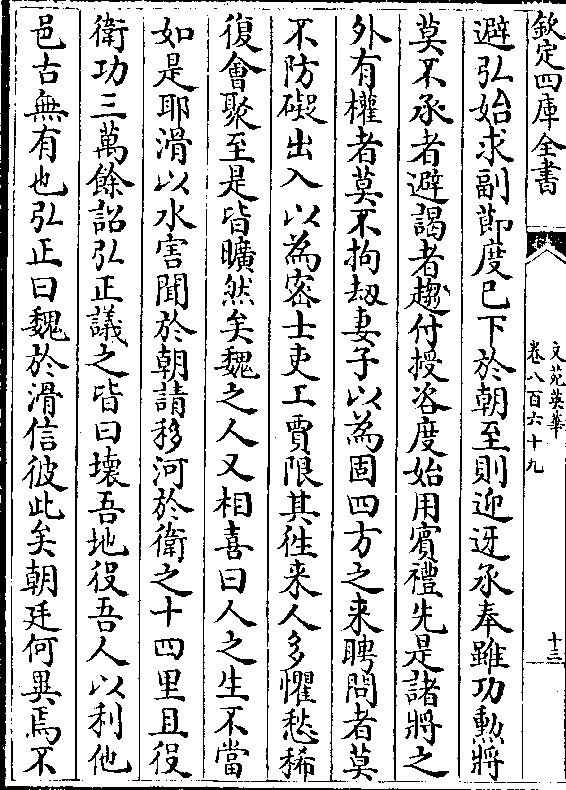 欽定四庫全書
文苑英華
卷八百六十九
十三
避弘始求副節度已下於朝至則迎迓承奉雖功勲將
莫不承者避謁者趨付授咨度始用賓禮先是諸將之
外有權者莫不拘刼妻子以為固四方之来聘問者莫
不防礙出入以為密士吏工賈限其徃来人多懼愁稀
復會聚至是皆曠然矣魏之人又相喜曰人之生不當
如是耶滑以水害聞於朝請移河於衛之十四里且役
衛功三萬餘詔弘正議之皆曰壊吾地役吾人以利他
邑古無有也弘正曰魏於滑信彼此矣朝廷何異焉不